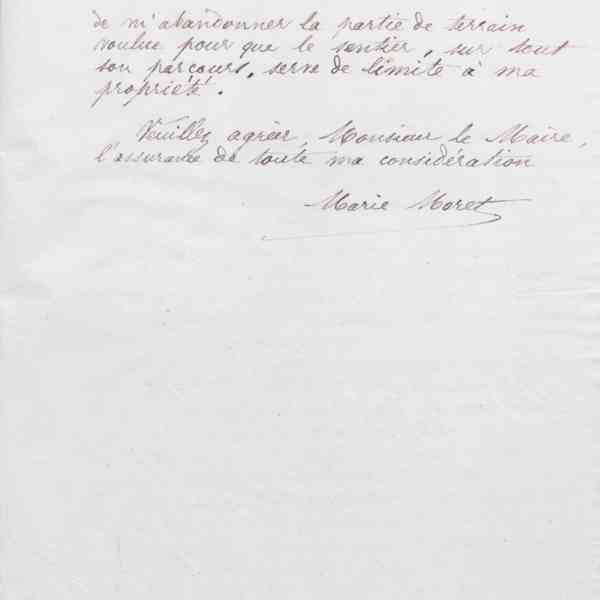 de m'abandonner la partie de terrain
voulue pour que le sentier, sur tout
son parcours, serve de limite à ma
propriété.
Veuillez agréer, Monsieur le Maire,
l'assurance de toute ma considération
Marie Moret